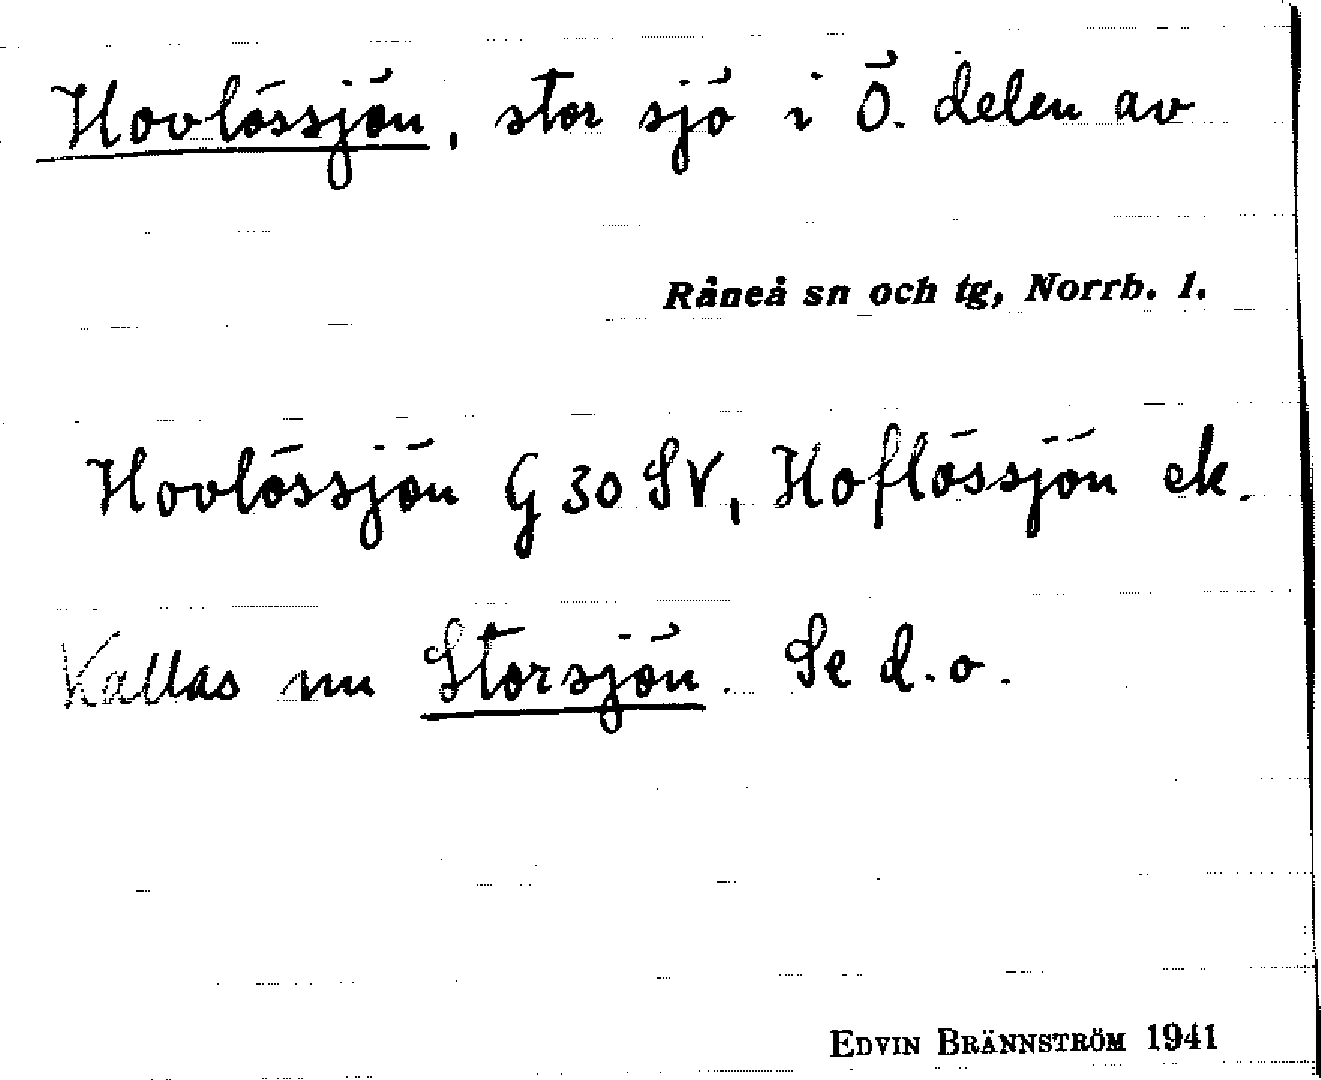 Hovlössjön, stor sjö i Ö. delen av
Råneå sn och tg, Norrb. l.
Hovlössjön G 30 SV, Hoflössjön ek.
Kallas nu Storsjön. Se d.o.
EDVIN BRÄNNSTRÖM 1941